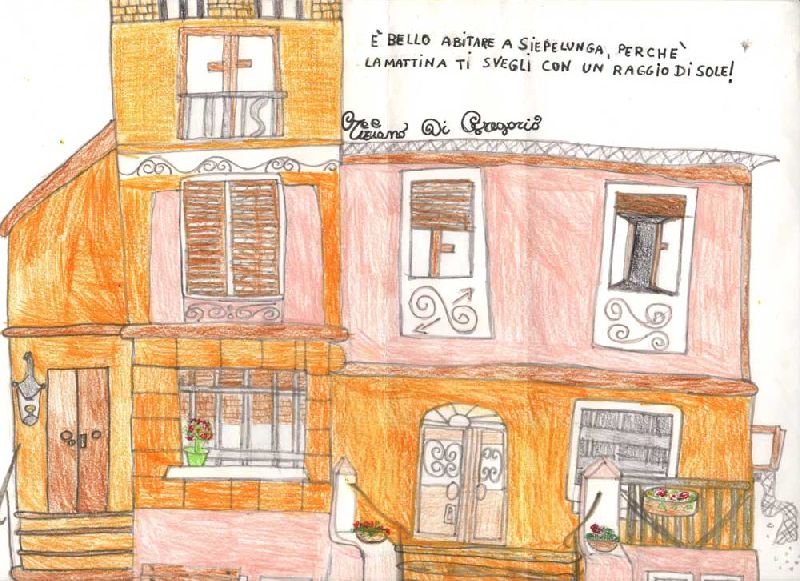 È BELLO ABITARE A SIEPELUNGA, PERCHÈ
LA MATTINA TI SVEGLI CON UN RAGGIO DI SOLE!
Di Gregorio